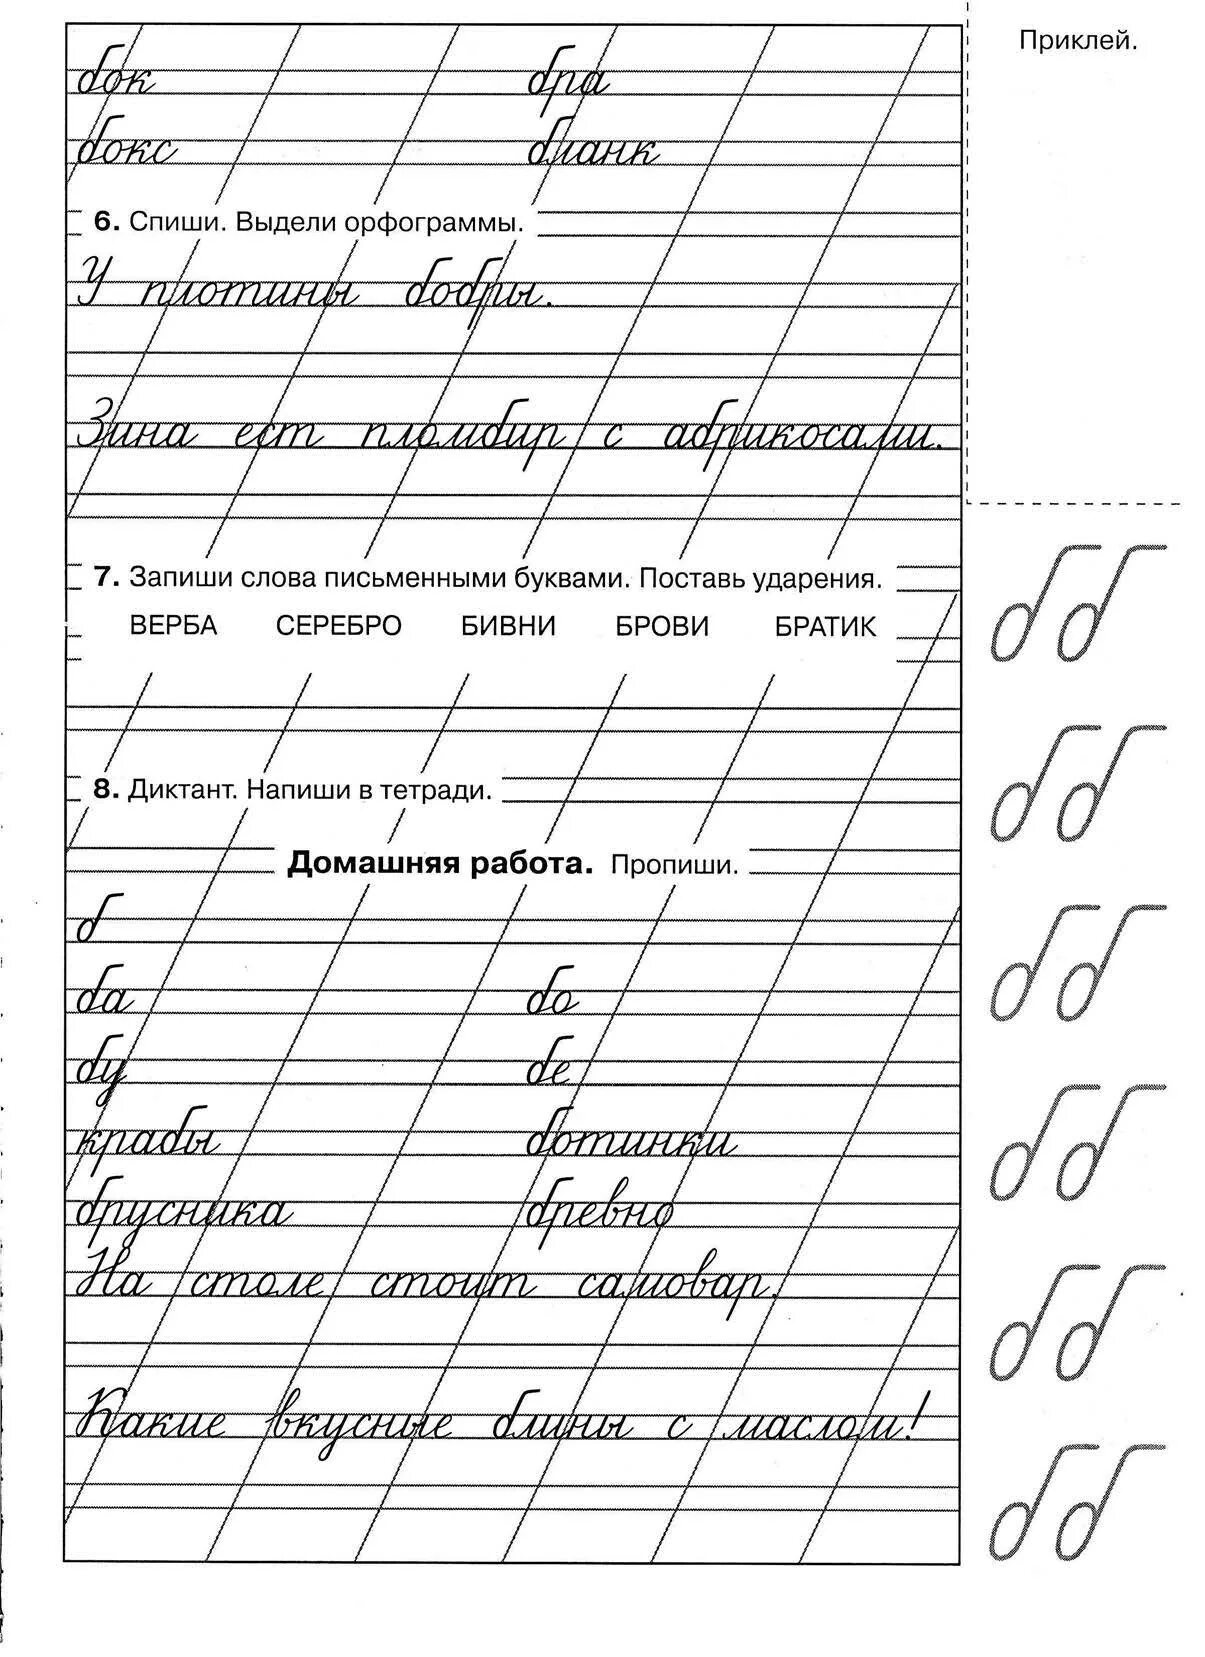 Приклей.
бок бра
бокс бланк
6. Спиши. Выдели орфограммы.
У плотины бобры.
Зина ест пломбир с абрикосами.
7. Запиши слова письменными буквами. Поставь ударения.
ВЕРБА СЕРЕБРО БИВНИ БРОВИ БРАТИК
8. Диктант. Напиши в тетради.
Домашняя работа. Пропиши.
б
ба бо
бу бе
крабы ботинки
брусника бревно
На столе стоит самовар.
Какие вкусные блины с маслом!
б б
б б
б б
б б
б б
б б